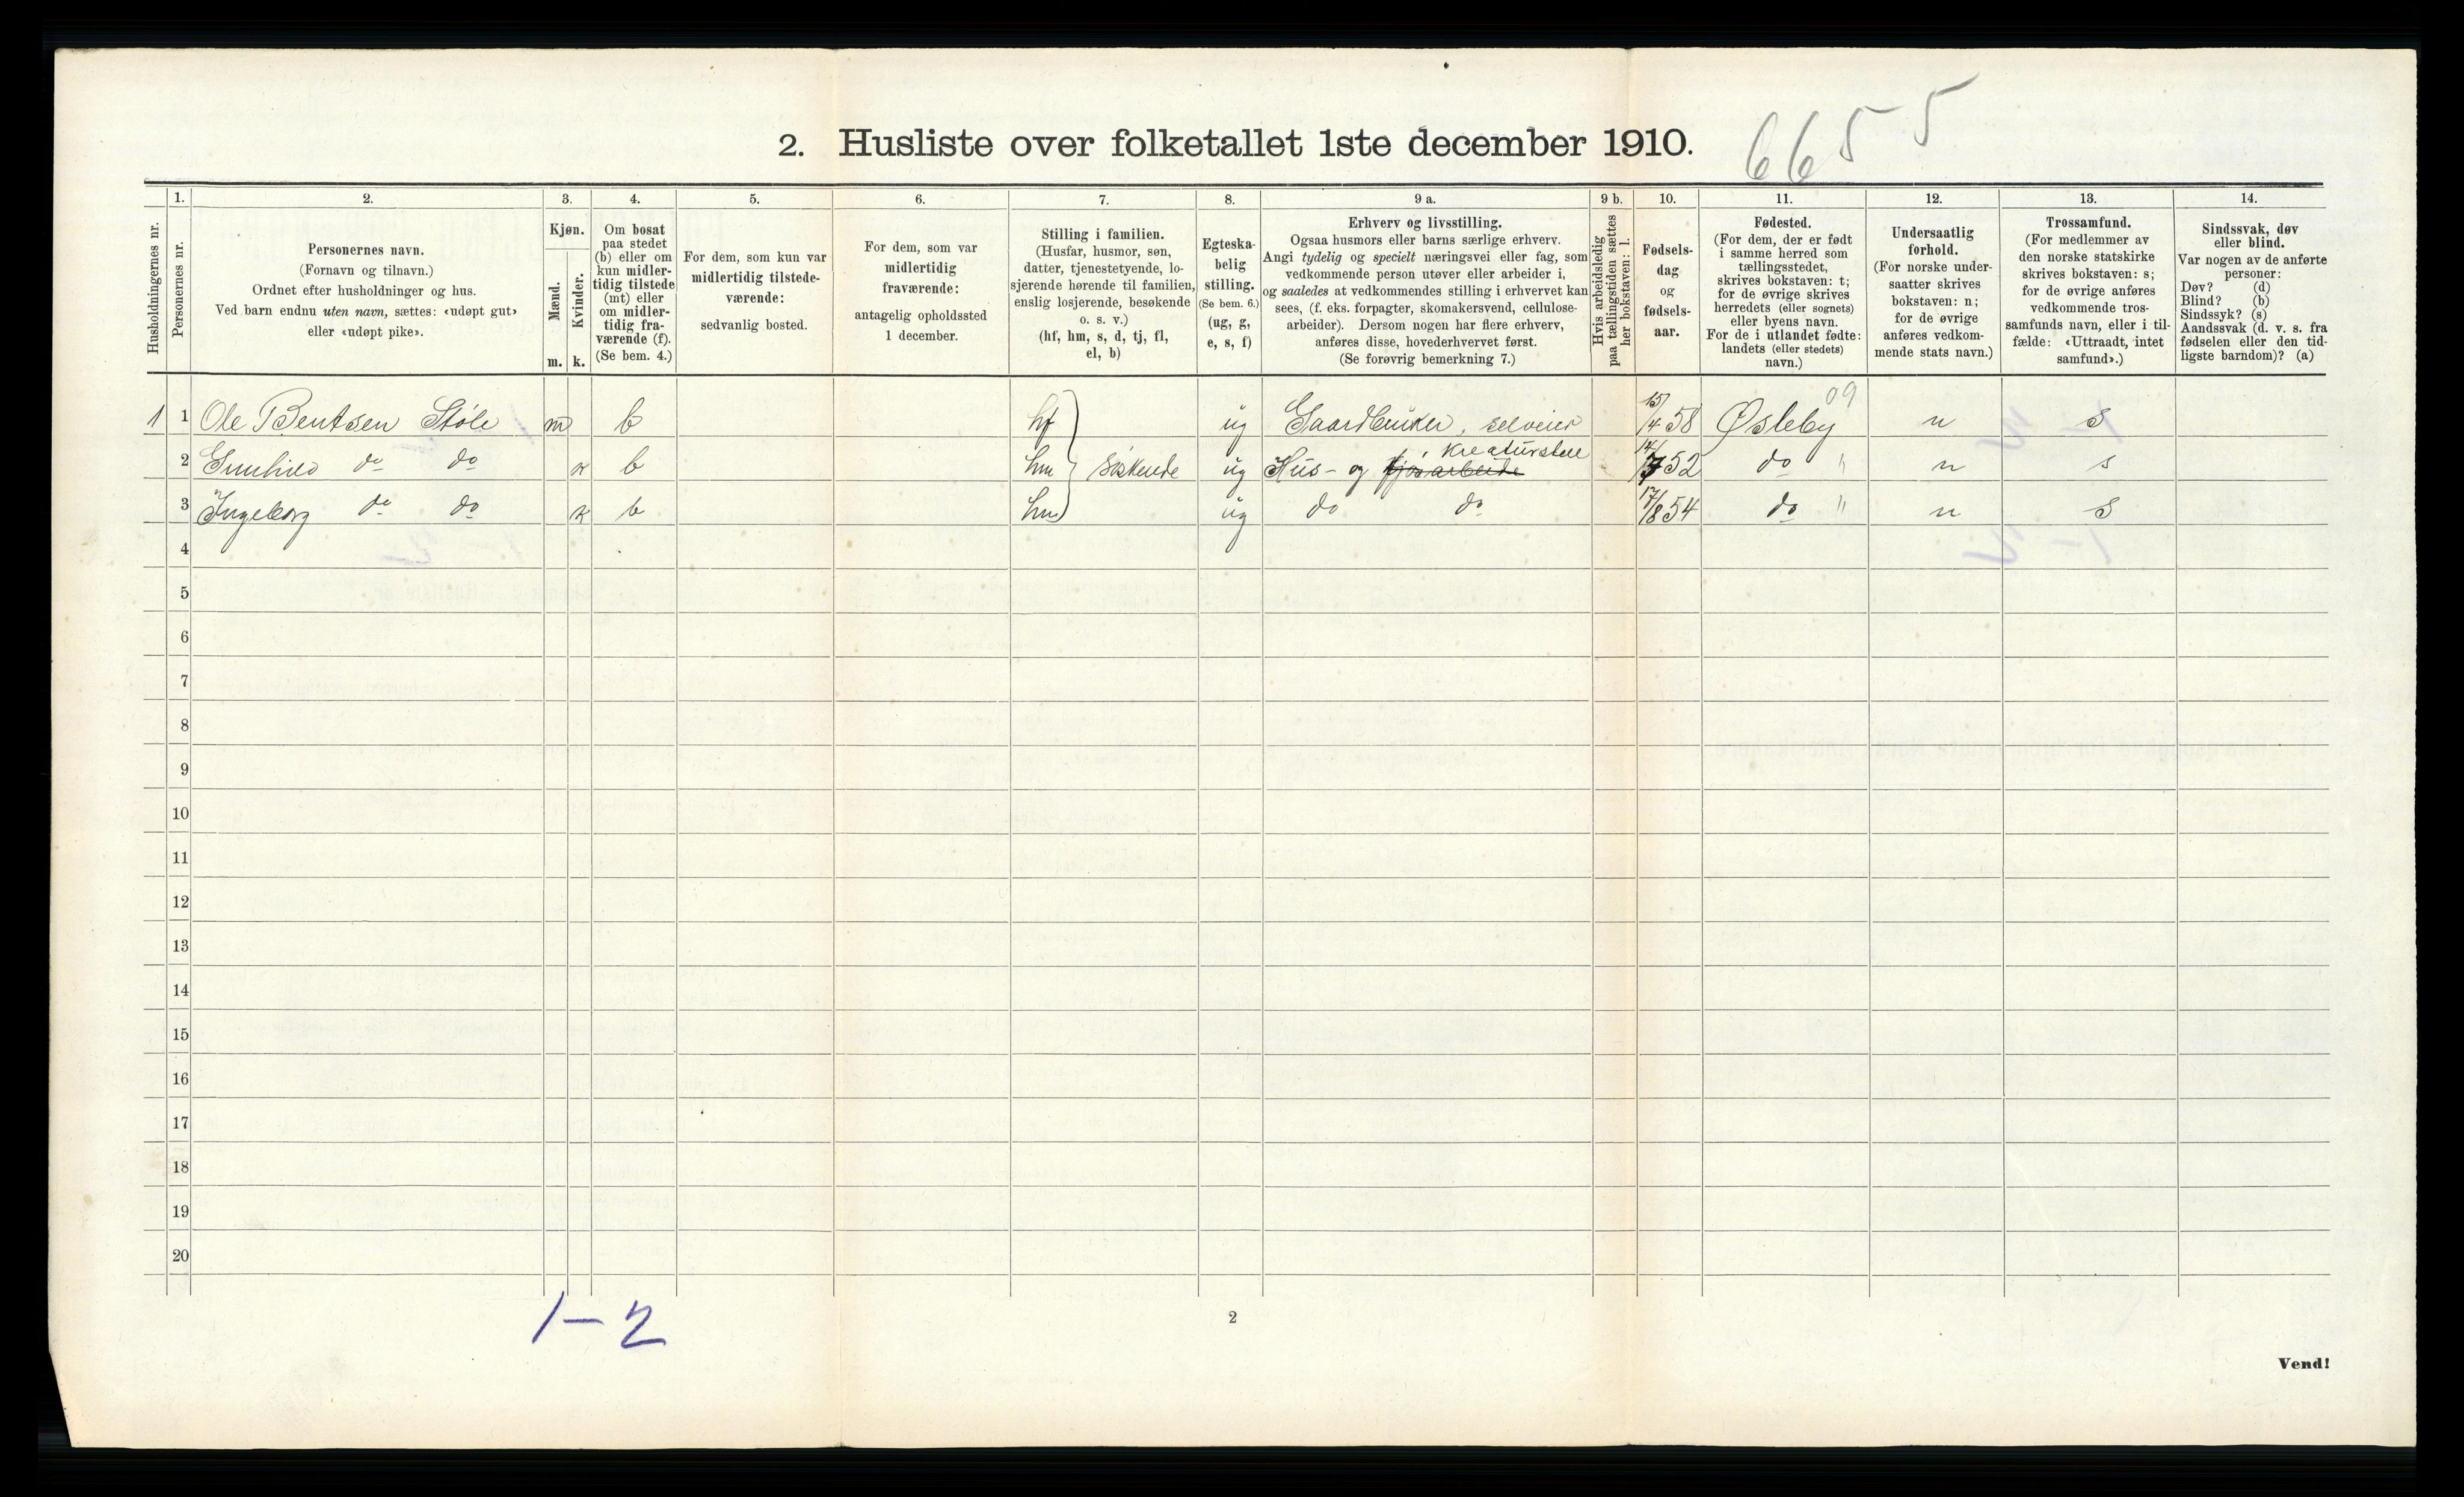 6655
2. Husliste over folketallet 1ste december 1910.
Husholdningernes nr.
1.
Personernes nr.
2.
Personernes navn.
(Fornavn og tilnavn.)
Ordnet efter husholdninger og hus.
Ved barn endnu uten navn, sættes: «udøpt gut»
eller «udøpt pike».
3.
Kjøn.
Mænd.
Kvinder.
m. k.
4.
Om bosat
paa stedet
(b) eller om
kun midler-
tidig tilstede
(mt) eller
om midler-
tidig fra-
værende (f).
(Se bem. 4.)
5.
For dem, som kun var
midlertidig tilstede-
værende:
sedvanlig bosted.
6.
For dem, som var
midlertidig
fraværende:
antagelig opholdssted
1 december.
7.
Stilling i familien.
(Husfar, husmor, søn,
datter, tjenestetyende, lo-
sjerende hørende til familien,
enslig losjerende, besøkende
o. s. v.)
(hf, hm, s, d, tj, fl,
el, b)
8.
Egteska-
belig
stilling.
(Se bem. 6.)
(ug, g,
e, s, f)
9 a.
Erhverv og livsstilling.
Ogsaa husmors eller barns særlige erhverv.
Angi tydelig og specielt næringsvei eller fag, som
vedkommende person utøver eller arbeider i,
og saaledes at vedkommendes stilling i erhvervet kan
sees, (f. eks. forpagter, skomakersvend, cellulose-
arbeider). Dersom nogen har flere erhverv,
anføres disse, hovederhvervet først.
(Se forøvrig bemerkning 7.)
9 b.
Hvis arbeidsledig
paa tællingstiden sættes
her bokstaven: l.
10.
Fødsels-
dag
og
fødsels-
aar.
11.
Fødested.
(For dem, der er født
i samme herred som
tællingsstedet,
skrives bokstaven: t;
for de øvrige skrives
herredets (eller sognets)
eller byens navn.
For de i utlandet fødte:
landets (eller stedets)
navn.)
12.
Undersaatlig
forhold.
(For norske under-
saatter skrives
bokstaven: n;
for de øvrige
anføres vedkom-
mende stats navn.)
13.
Trossamfund.
(For medlemmer av
den norske statskirke
skrives bokstaven: s;
for de øvrige anføres
vedkommende tros-
samfunds navn, eller i til-
fælde: «Uttraadt, intet
samfund».)
14.
Sindssvak, døv
eller blind.
Var nogen av de anførte
personer:
Døv? (d)
Blind? (b)
Sindssyk? (s)
Aandssvak (d. v. s. fra
fødselen eller den tid-
ligste barndom)? (a)
09
1 1 Ole Bentsen Støle m b hf ug Gaardbruker, selveier 15/4 58 Øsleby n s
kreaturstell
2 Gunhild do do k b hm Søskende ug Hus- og fjøsarbeide 14/7 52 do " n s
3 Ingeborg do do k b hm ug do do 17/8 54 do " n s
4
5
6
7
8
9
10
11
12
13
14
15
16
17
18
19
20
1-2
2
Vend!